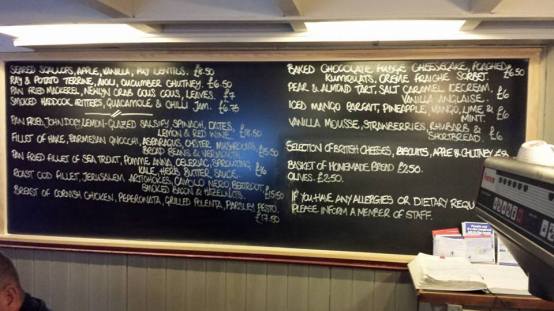 SEARED SCALLOPS, APPLE, VANILLA, PUY LENTILS. £8.50
& POTATO TERRINE, AIOLI, CUCUMBER CHUTNEY. £6.50
PAN FRIED MACKEREL, NEWLYN CRAB COUS COUS, LEAVES. £7
SMOKED HADDOCK FRITTERS, GUACAMOLE & CHILLI JAM. £6.75
PAN FRIED JOHN DORY, LEMON-GLAZED SALSIFY, SPINACH, DATES,
LEMON & RED WINE.
FILLET OF HAKE, PARMESAN GNOCCHI, ASPARAGUS, OYSTER MUSHROOMS,
BROAD BEANS & VERMOUTH.
PAN FRIED FILLET OF SEA TROUT, POMME ANNA, CELERIAC, SPROUTING
KALE, HERB BUTTER SAUCE.
ROAST COD FILLET, JERUSALEM ARTICHOKES, CAVOLO NERO, BEETROOT,
SMOKED BACON & HAZELNUTS.
BREAST OF CORNISH CHICKEN, PEPERONATA, GRILLED POLENTA, PARSLEY PESTO
£17.50
BAKED CHOCOLATE FUDGE CHEESECAKE, POACHED
KUMQUATS, CRÈME FRAICHE SORBET. £6.50
PEAR & ALMOND TART, SALT CARAMEL ICECREAM,
VANILLA ANGLAISE. £6
ICED MANGO PARFAIT, PINEAPPLE, MANGO, LIME &
MINT. £6
VANILLA MOUSSE, STRAWBERRIES, RHUBARB &
SHORTBREAD. £6
SELECTION OF BRITISH CHEESES, BISCUITS, APPLE CHUTNEY
BASKET OF HOMEMADE BREAD £2.50
OLIVES. £2.50.
IF YOU HAVE ANY ALLERGIES OR DIETARY REQU
PLEASE INFORM A MEMBER OF STAFF.